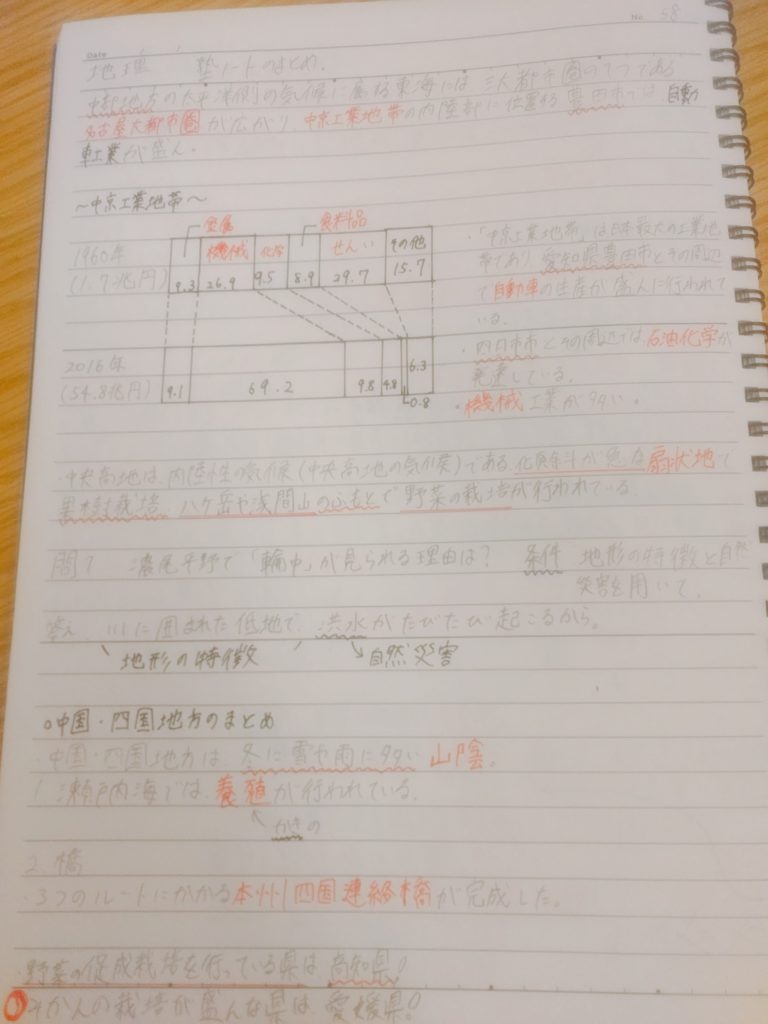 Date
No. 58
地理 塾ノートのまとめ.
中部地方の太平洋側の気候に属する東海には 三大都市圏の1つである
名古屋大都市圏が広がり、中京工業地帯の内陸部に位置する豊田市では、自動
車工業が盛ん。
～中京工業地帯～
金属 食料品
1960年 機械 化学 せんい その他
(1.7兆円) 9.3 26.9 9.5 8.9 29.7 15.7
2016年
(54.8兆円) 9.1 69.2 9.8 4.8 6.3
0.8
・「中京工業地帯」は日本最大の工業地
帯であり 愛知県豊田市とその周辺
で自動車の生産が盛んに行われて
いる.
・四日市市とその周辺では、石油化学が
発達している。
・機械工業が多い。
・中央高地は、内陸性の気候(中央高地の気候)である.化傾斜が急な扇状地で
果樹栽培、八ヶ岳や浅間山のふもとで野菜の栽培が行われている.
問? 濃尾平野で「輪中」が見られる理由は? 条件 地形の特徴と自然
災害を用いて、
答え、川に囲まれた低地で、洪水がたびたび起こるから。
地形の特徴 自然災害
○中国・四国地方のまとめ
・中国・四国地方は 冬に雪や雨に多い 山陰。
1. 瀬戸内海では、養殖が行われている.
かきの
2. 橋
・3つのルートにかかる本州四国連絡橋が完成した。
・野菜の促成栽培を行っている県は 高知県!
みかんの栽培が盛んな県は、愛媛県!